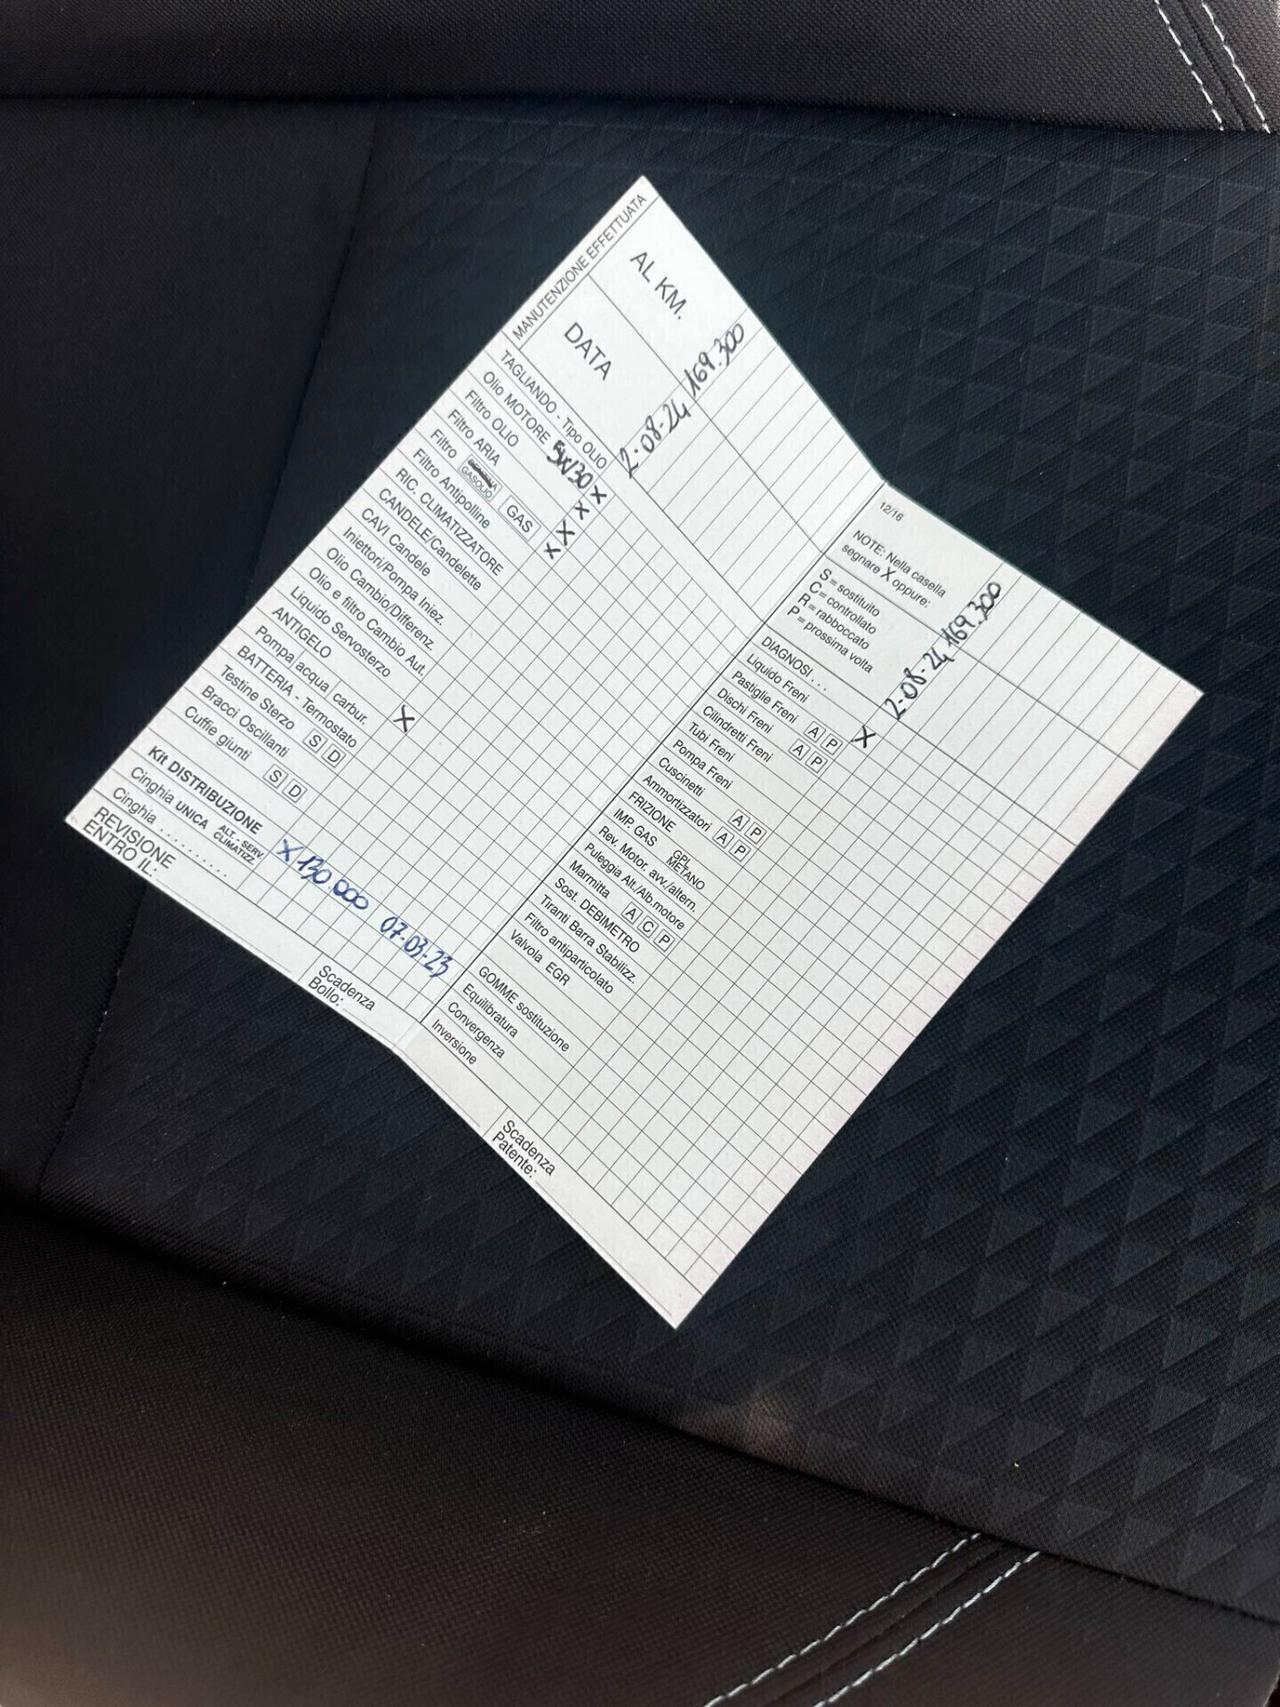 MANUTENZIONE EFFETTUATA
AL KM.
169.300
DATA
2-08-24
TAGLIANDO - Tipo OLIO
5W30
Olio MOTORE X
Filtro OLIO X
Filtro ARIA X
Filtro GASOLIO GAS X
Filtro Antipolline
RIC. CLIMATIZZATORE
CANDELE/Candelette
CAVI Candele
Iniettori/Pompa Iniez.
Olio Cambio/Differenz.
Olio e filtro Cambio Aut.
Liquido Servosterzo
ANTIGELO
Pompa acqua carbur.
BATTERIA - Termostato X
Testine Sterzo S D
Bracci Oscillanti
Cuffie giunti S D
Kit DISTRIBUZIONE X 130 000 07-03-23
Cinghia UNICA ALT., SERV. CLIMATIZZ.
Cinghia .........
REVISIONE
ENTRO IL:
Scadenza
Bollo:
12/16
NOTE: Nella casella
segnare X oppure:
S = sostituito
C = controllato
R = rabboccato
P = prossima volta
2-08-24 169.300
DIAGNOSI . . .
Liquido Freni
Pastiglie Freni A P X
Dischi Freni A P
Cilindretti Freni
Tubi Freni
Pompa Freni
Cuscinetti A P
Ammortizzatori A P
FRIZIONE
IMP. GAS GPL METANO
Rev. Motor. avv./altern.
Puleggia Alt./Alb.motore
Marmitta A C P
Sost. DEBIMETRO
Tiranti Barra Stabilizz.
Filtro antiparticolato
Valvola EGR
GOMME sostituzione
Equilibratura
Convergenza
Inversione
Scadenza
Patente: